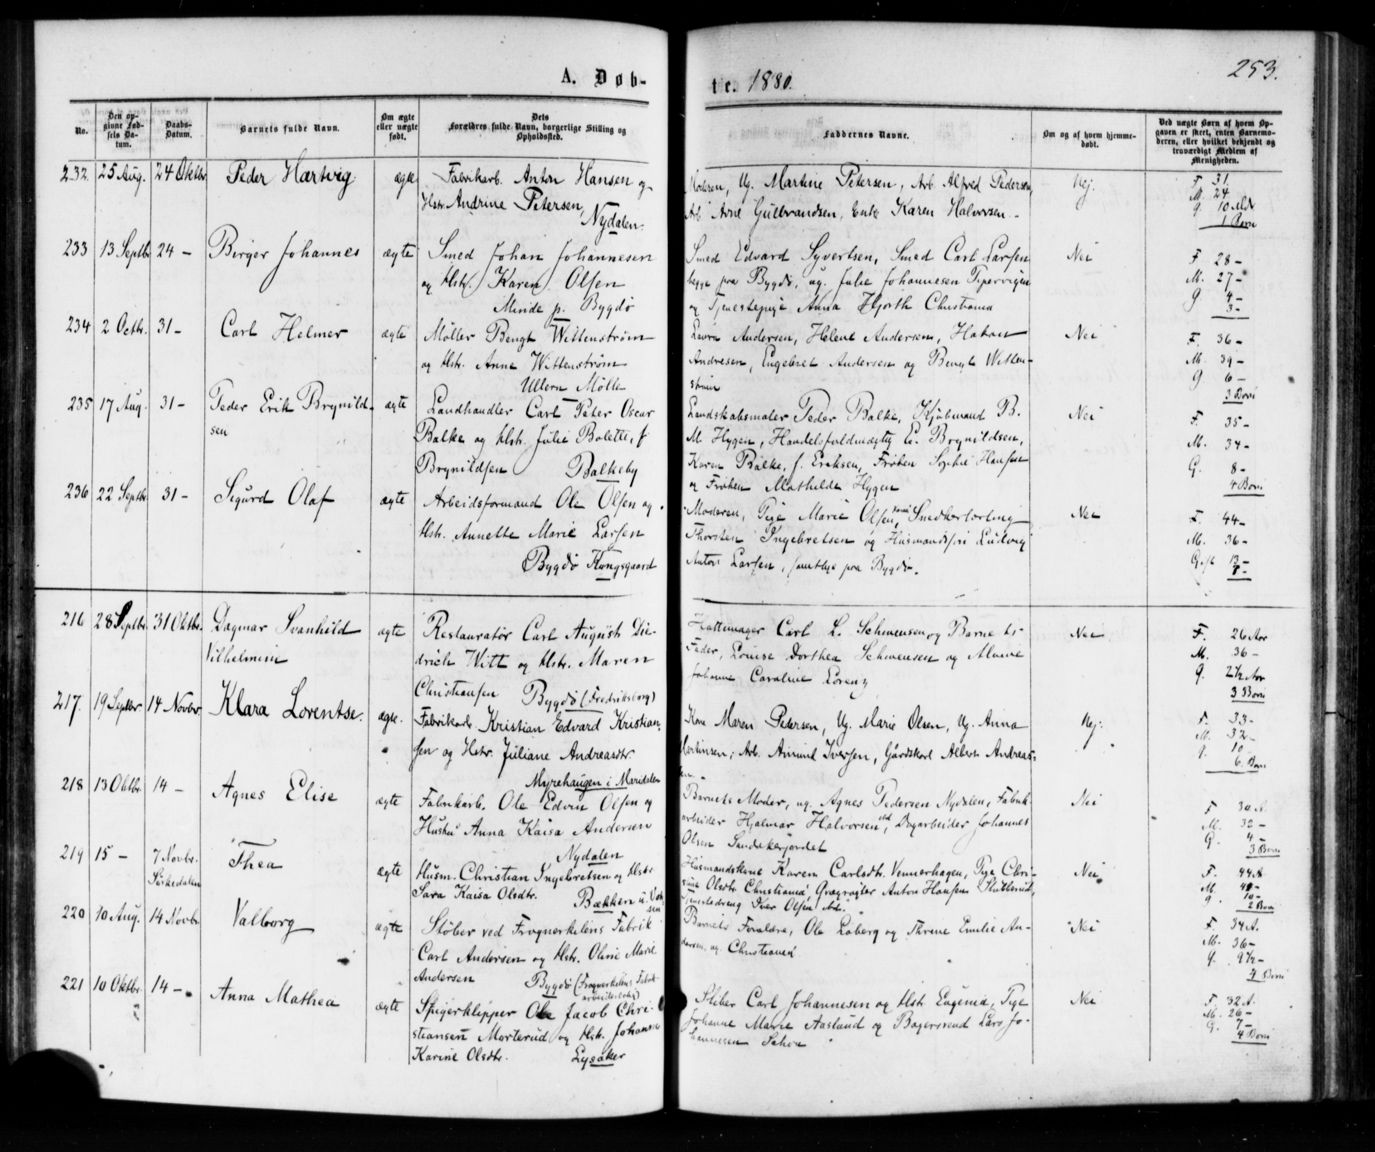 A. Døb-
te. 1880.
253.
No.
Den opgivne Fødsels Datum.
Daabs-Datum.
Barnets fulde Navn.
Om ægte eller uægte født.
Dets Forældres fulde Navn, borgerlige Stilling og Opholdssted.
Faddernes Navne.
Om og af hvem hjemmedøbt.
Ved uægte Børn af hvem Opgaven er skeet, enten Barnemoderen, eller hvilket bekjendt og troværdigt Medlem af Menigheden.
232. 25 Aug. 24 Oktbr Peder Hartvig ægte Fabrikarb. Anton Hansen og
Hstr. Andrine Petersen,
Nydalen.
Moderen, Ug. Martine Petersen, Arb. Alfred Pedersen,
Arb. Arne Gulbrandsen, Enke Karen Halvorsen.
Nej.
F. 31.
M. 24
G. 10 Mdr
1 Barn
233 13 Septbr 24 - Birger Johannes ægte Smed Johan Johannesen
og Hstr. Karen Olsen
Minde p. Bygdø
Smed Edvard Syvertsen, Smed Carl Larsen
begge paa Bygdø, ug. Julie Johannesen Pipervigen
og Tjenestepige Anna Hjorth Christiania
Nei
F. 28 -
M. 27 -
G 4 -
3 -
234 2 Octb. 31 - Carl Helmer ægte Møller Bengt Wittenstrøm
og Hstr. Anne Wittenstrøm
Ullern Mølle
Andersen, Helene Andersen, Hakon
Andresen, Engebret Andersen og Bengt Witten-
strøm
Nei
F. 36 -
M. 39 -
G 6 -
3 Børn
235 17 Aug. 31 - Peder Erik Brynild-
sen
ægte Landhandler Carl Peter Oscar
Balke og Hstr. Julie Bolette, f
Brynildsen Balkeby
Landskabsmaler Peder Balke, Kjøbmand B.
M Hygen, Handelsfuldmægtig E. Brynildsen,
Karen Balke, f. Eriksen, Frøken Sophie Hansen
og Frøken Mathilde Hygen
Nei
F. 35 -
M. 34 -
G. 8 -
4 Børn
236 22 Septbr. 31 - Sigurd Olaf ægte Arbeidsformand Ole Olsen og
Hstr. Annette Marie Larsen
Bygdø Kongsgaard
Moderen, Pige Marie Olsen, Smedkerlærling
Thorsten Ingebretsen og Husmandsøn Ludvig
Anton Larsen, samtlige paa Bygdø.
Nei
F. 44 -
M. 36 -
Gift 13 -
216 28 Septbr. 31 Oktbr. Dagmar Svanhild
Vilhelmine
ægte Restauratør Carl August Die-
drich Witt og Hstr. Maren
Christiansen Bygdø (Fredriksborg)
Hattemager Carl L. Schwensen og Barnets
Fader, Louise Dorthea Schwensen og
Johanne Caroline Lorenz
Nei
F. 26 Aar
M. 36 -
G. 2½ Aar
3 Børn
217. 19 Septbr 14 Novbr Klara Lorentse. ægte. Fabrikarb. Kristian Edvard Kristian-
sen og Hstr. Juliane Andreasdtr
Myrehaugen i Maridalen
Kone Maren Pedersen, Ug. Marie Olsen, Ug. Anna
Martinsen, Arb. Amund Iversen, Gårdskarl Albert Andreas-
sen.
Nej.
F. 33 -
M. 32 -
G. 10
6. Børn
218 13 Oktbr. 14 - Agnes Elise ægte Fabrikarb. Ole Edvin Olsen og
Hustru Anna Kaisa Andersen
Nydalen
Barnets Moder, ug. Agnes Pedersen Nydalen, Fabrik-
arbeider Hjalmar Halvorsen, Dagarbeider Johannes
Olsen Sandakerjordet
Nei
F. 30 A.
M. 32 -
G. 4 -
3 Børn
219 15 - 7 Novbr.
Sørkedalen
Thea ægte Husm. Christian Ingebretsen og Hstr
Sara Kaisa Olsdtr.
Husmandskone Karen Carlsdtr. Vennerhagen, Pige
Anton Hansen
Iver Olsen
Nei
F. 44 A
M. 40 -
G. 10 -
2 Børn
220 10 Aug. 14 Novbr. Valborg ægte Støber ved Frognerkilens Fabrik
Carl Andersen og Hstr. Oline Marie
Andersen Bygdø (Frognerkilens Fabrik
arbeiderbolig)
Barnets Forældre, Ole Loberg og Thrine Emilie An-
dersen, ug. Christiania
Nei
F. 34 A.
M. 36 -
G. 9½ -
4 Børn
221 10 Oktbr. 14 - Anna Mathea ægte Spigerklipper Ole Jacob Chri-
stiansen Morterud og Hstr. Johanne
Karine Olsdtr. Lysaker
Støber Carl Johannesen og Hstr Eugenia, Pige
Johanne Marie Aaslund og Bagersvend Lars Jo-
hannesen
Nei
F. 32 A.
M. 26 -
G. 7 -
4 Børn